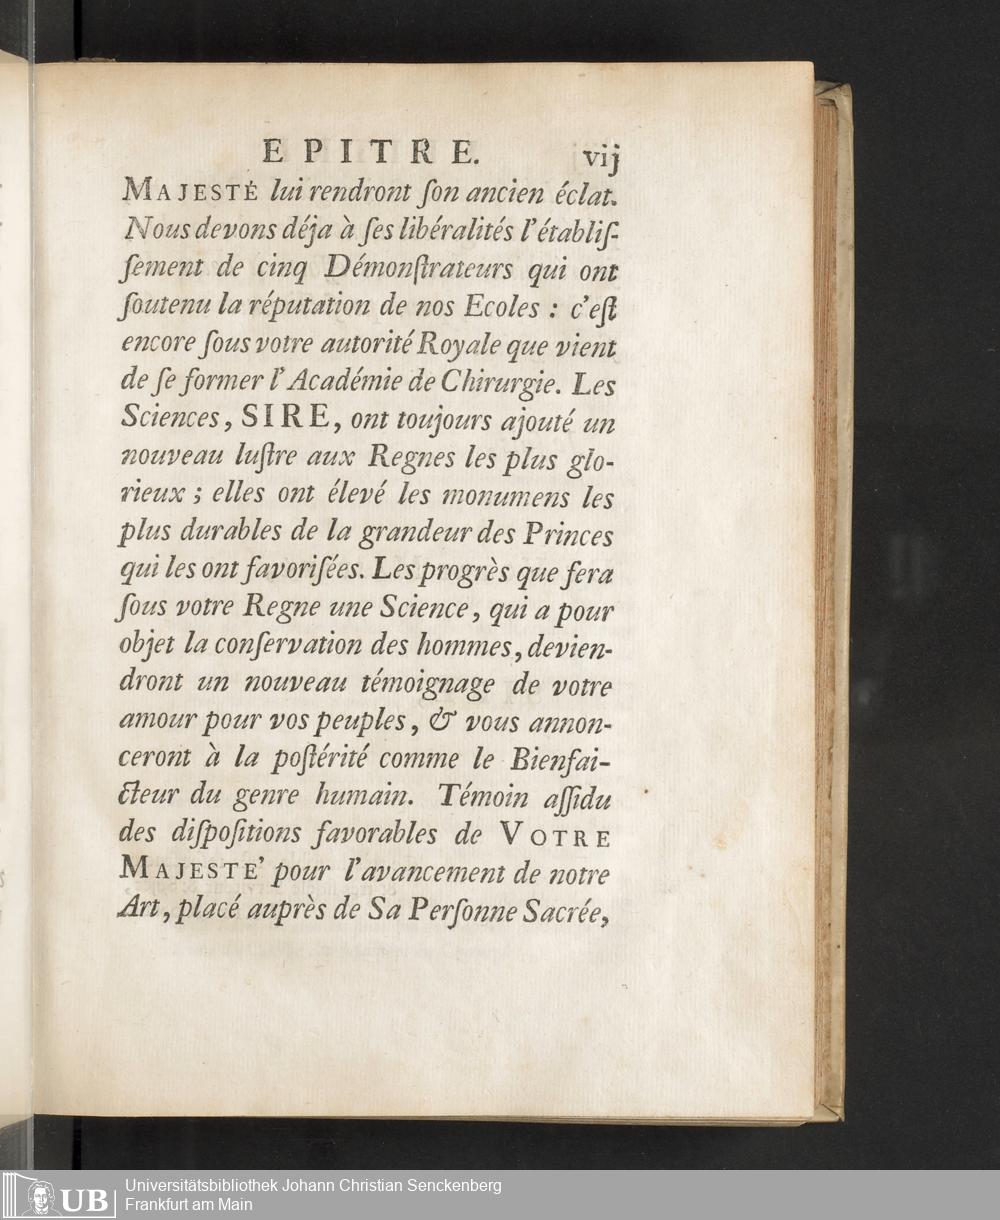 EPITRE. vij
MAJESTÉ lui rendront ſon ancien éclat.
Nous devons déja à ſes libéralités l'établiſ-
ſement de cinq Démonſtrateurs qui ont
ſoutenu la réputation de nos Ecoles : c'eſt
encore ſous votre autorité Royale que vient
de ſe former l'Académie de Chirurgie. Les
Sciences, SIRE, ont toujours ajouté un
nouveau luſtre aux Regnes les plus glo-
rieux ; elles ont élevé les monumens les
plus durables de la grandeur des Princes
qui les ont favoriſées. Les progrès que fera
ſous votre Regne une Science, qui a pour
objet la conſervation des hommes, devien-
dront un nouveau témoignage de votre
amour pour vos peuples, & vous annon-
ceront à la poſtérité comme le Bienfai-
cteur du genre humain. Témoin aſſidu
des diſpoſitions favorables de VOTRE
MAJESTE' pour l'avancement de notre
Art, placé auprès de Sa Perſonne Sacrée,
UB
Universitätsbibliothek Johann Christian Senckenberg
Frankfurt am Main